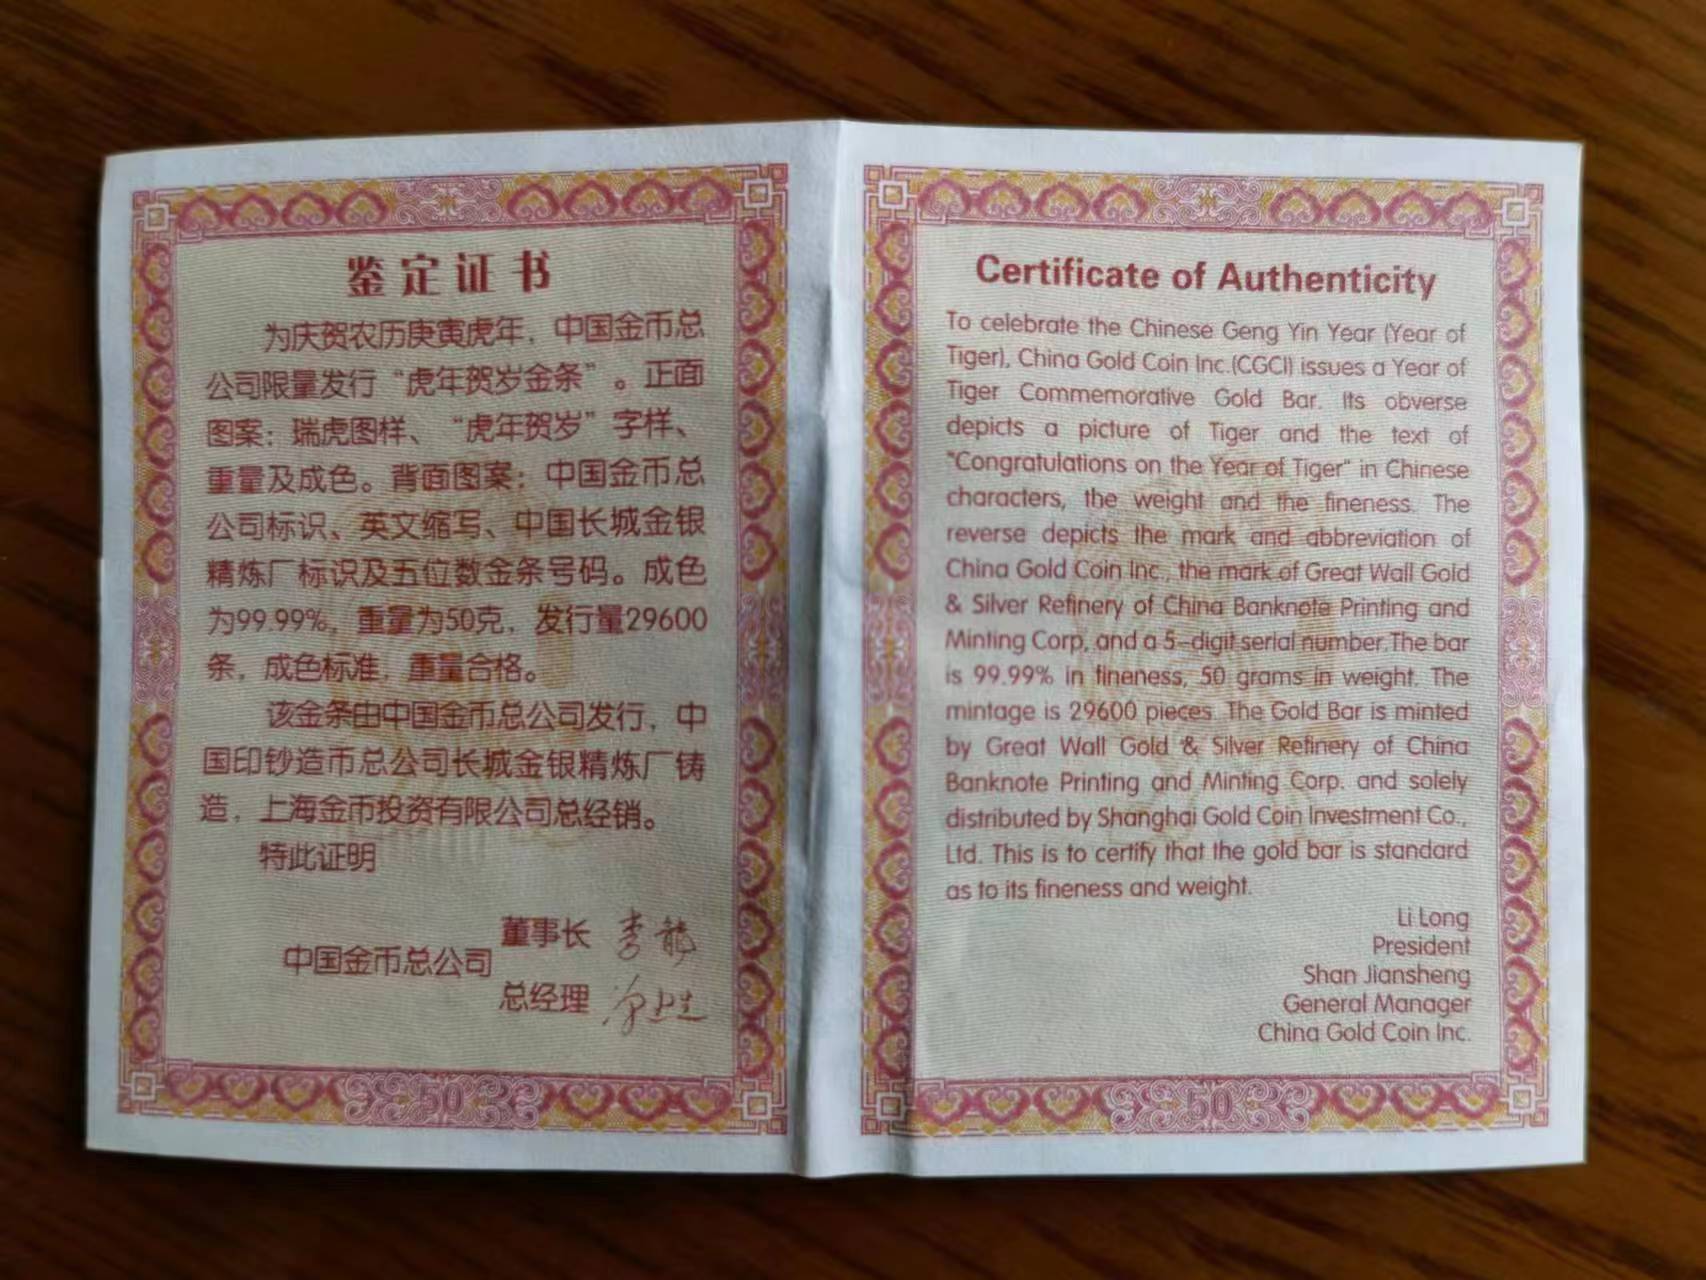 鉴定证书
为庆贺农历庚寅虎年，中国金币总
公司限量发行“虎年贺岁金条”。正面
图案：瑞虎图样、“虎年贺岁”字样、
重量及成色。背面图案：中国金币总
公司标识、英文缩写、中国长城金银
精炼厂标识及五位数金条号码。成色
为99.99%，重量为50克，发行量29600
条，成色标准，重量合格。
该金条由中国金币总公司发行，中
国印钞造币总公司长城金银精炼厂铸
造，上海金币投资有限公司总经销。
特此证明
董事长 李龍
中国金币总公司
总经理
50
Certificate of Authenticity
To celebrate the Chinese Geng Yin Year (Year of
Tiger), China Gold Coin Inc.(CGCI) issues a Year of
Tiger Commemorative Gold Bar. Its obverse
depicts a picture of Tiger and the text of
"Congratulations on the Year of Tiger" in Chinese
characters, the weight and the fineness. The
reverse depicts the mark and abbreviation of
China Gold Coin Inc., the mark of Great Wall Gold
& Silver Refinery of China Banknote Printing and
Minting Corp, and a 5-digit serial number.The bar
is 99.99% in fineness, 50 grams in weight. The
mintage is 29600 pieces. The Gold Bar is minted
by Great Wall Gold & Silver Refinery of China
Banknote Printing and Minting Corp. and solely
distributed by Shanghai Gold Coin Investment Co.,
Ltd. This is to certify that the gold bar is standard
as to its fineness and weight.
Li Long
President
Shan Jiansheng
General Manager
China Gold Coin Inc.
50